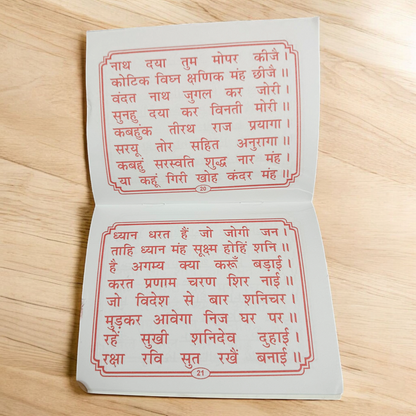 नाथ दया तुम मोपर कीजै ।
कोटिक विघ्न क्षणिक मंह छीजै ॥
वंदत नाथ जुगल कर जोरी ।
सुनहु दया कर विनती मोरी ॥
कबहुंक तीरथ राज प्रयागा ।
सरयू तोर सहित अनुरागा ॥
कबहुं सरस्वति शुद्ध नार मंह ।
या कहूं गिरी खोह कंदर मंह ॥
20
ध्यान धरत हैं जो जोगी जन ।
ताहि ध्यान मंह सूक्ष्म होहिं शनि ॥
है अगम्य क्या करूँ बड़ाई ।
करत प्रणाम चरण शिर नाई ॥
जो विदेश से बार शनिचर ।
मुड़कर आवेगा निज घर पर ॥
रहें सुखी शनिदेव दुहाई ।
रक्षा रवि सुत रखैं बनाई ॥
21